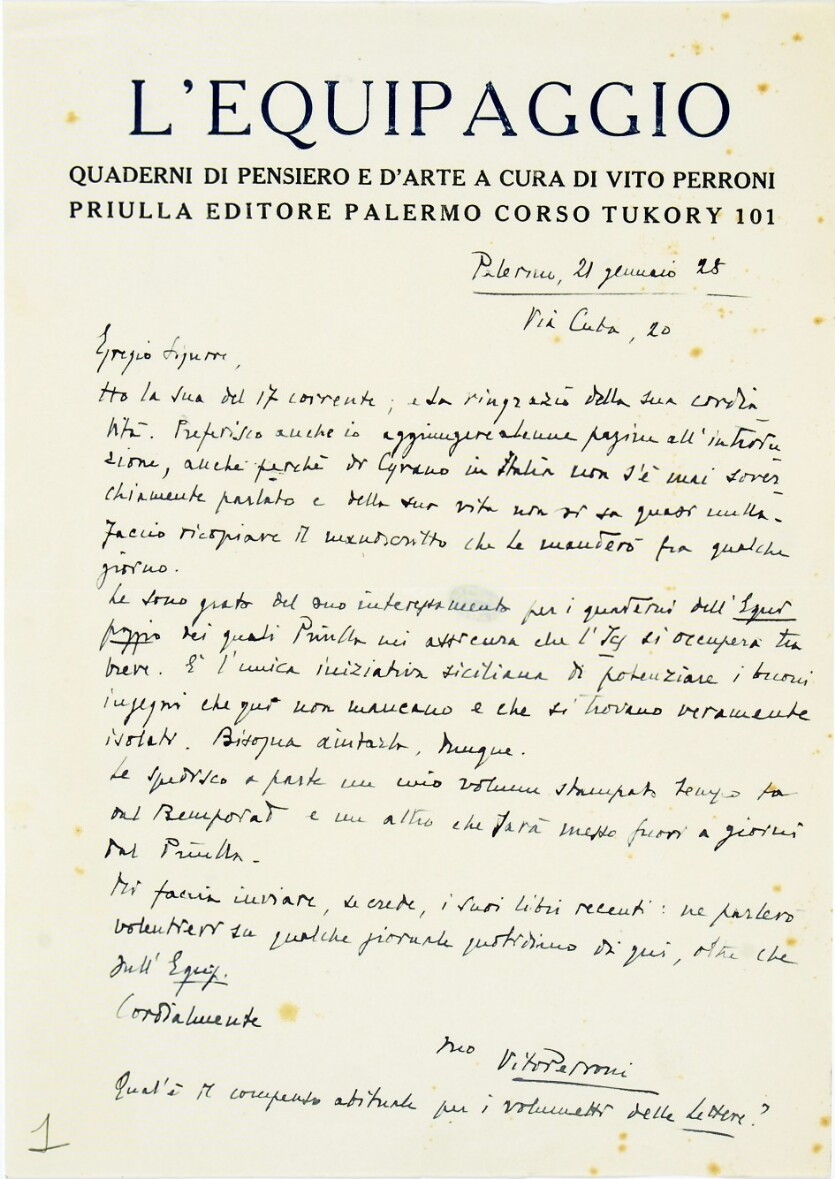 L'EQUIPAGGIO
QUADERNI DI PENSIERO E D'ARTE A CURA DI VITO PERRONI
PRIULLA EDITORE PALERMO CORSO TUKORY 101
Palermo, 21 gennaio 28
Via Cuba, 20
Egregio Signore,
Ho la sua del 17 corrente, e La ringrazio della sua cordia
lità. Preferisco anche io aggiungere alcune pagine all'introdu
zione, anche perchè di Cyrano in Italia non s'è mai sover
chiamente parlato e della sua vita non si sa quasi nulla.
Faccio ricopiare il manoscritto che Le manderò fra qualche
giorno.
Le sono grato del suo interessamento per i quaderni dell'Equi
paggio dei quali Priulla mi assicura che l' si occuperà tra
breve. È l'unica iniziativa siciliana di potenziare i buoni
ingegni che qui non mancano e che si trovano veramente
isolati. Bisogna aiutarla, dunque.
Le spedisco a parte un mio volume stampato tempo fa
dal Bemporad e un altro che sarà messo fuori a giorni
dal Priulla.
Mi faccia inviare, se crede, i suoi libri recenti: ne parlerò
volentieri su qualche giornale quotidiano di qui, oltre che
sull'Equip.
Cordialmente
suo Vito Perroni
Qual'è il compenso abituale per i volumetti delle Lettere?
1